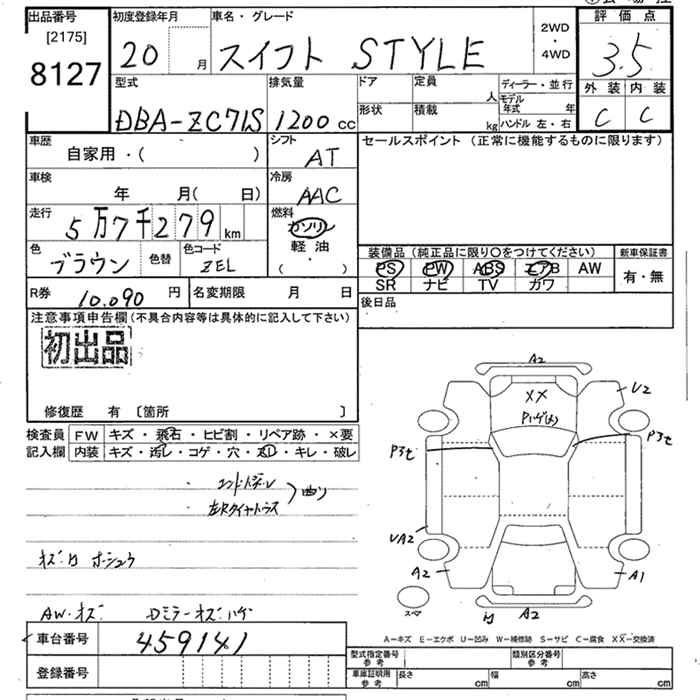 出品番号
[2175]
8127
初度登録年月
20 月
車名・グレード
スイフト STYLE
2WD
4WD
評価点
3.5
外装 内装
C C
型式
DBA-ZC71S
排気量
1200 cc
ドア
定員
人
ディーラー・並行
モデル年式 年
形状
積載
kg
ハンドル 左・右
車歴
自家用・( )
シフト
AT
セールスポイント (正常に機能するものに限ります)
車検
年 月( 日)
冷房
AAC
走行
5万7千279 km
燃料
ガソリン
軽油
・
( )
色
ブラウン
色替
色コード
ZEL
装備品 (純正品に限り○をつけてください)
PS PW ABS エアB AW
SR ナビ TV カワ
新車保証書
有・無
R券
10.090 円
名変期限 月 日
後日品
注意事項申告欄 (不具合内容等は具体的に記入して下さい)
初出品
修復歴 有 〔箇所 〕
検査員記入欄
FW キズ・飛石・ヒビ割・リペア跡・×要
内装 キズ・汚レ・コゲ・穴・スレ・キレ・破レ
左Rタイヤハウス
曲リ
AW・キズ
Dミラーキズ
A2
XX
U2
P3セ
P3セ
UA2
A2
A1
A2
スペア
A-キズ E-エクボ U-凹み W-補修跡 S-サビ C-腐食 XX-交換済
車台番号
459141
登録番号
型式指定番号
参考
類別区分番号
参考
車庫証明用
参考
長さ cm
幅 cm
高さ cm